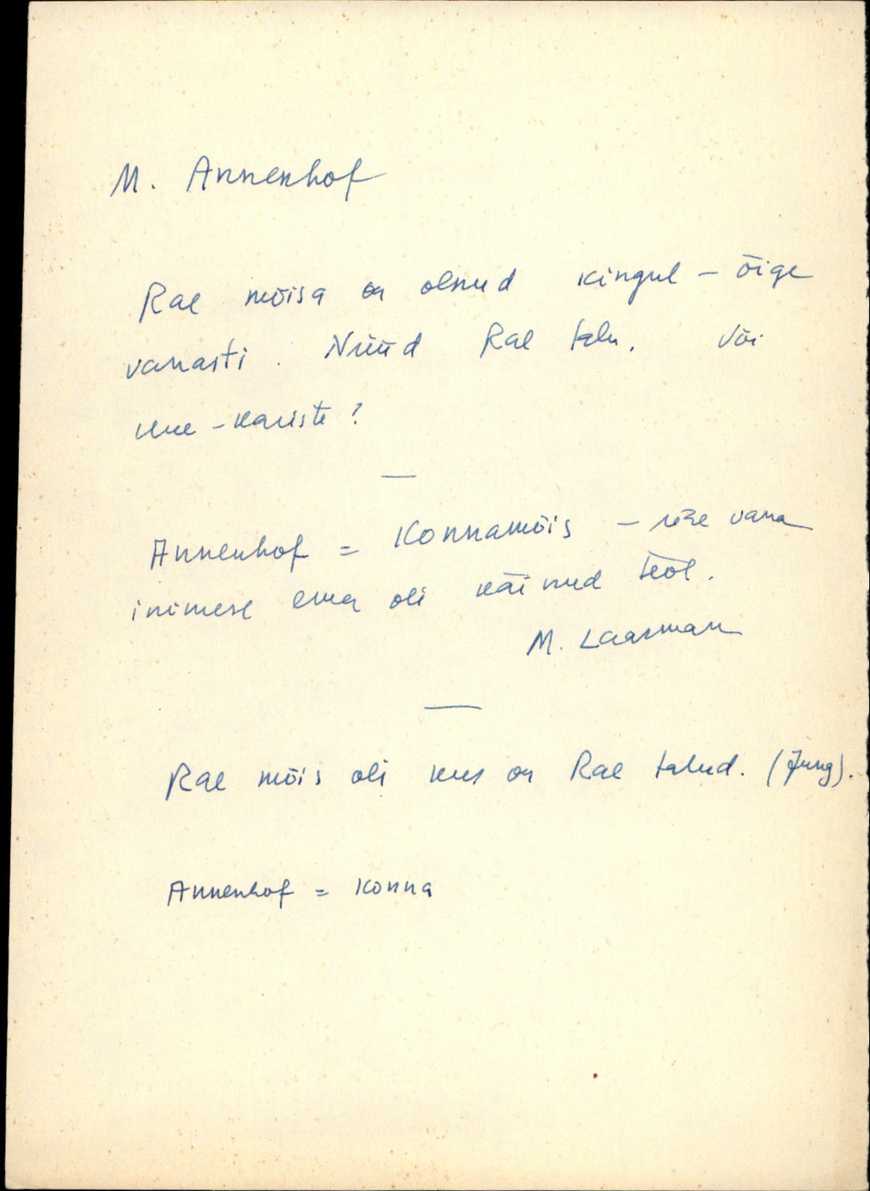 M. Annenhof
Rae mõisa on olnud kingul – õige
vanasti. Nüüd Rae talu. Või
uue-kariste?
—
Annenhof = Konnamõis – ühe vana
inimese ema oli käinud teol.
M. Laarman
—
Rae mõis oli kus on Rae talud. (Jung).
Annenhof = Konna